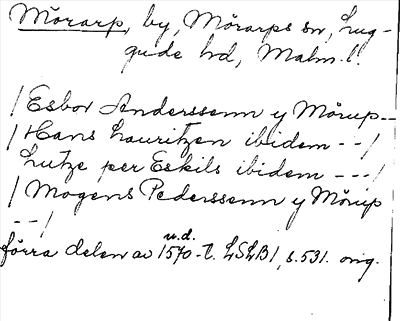 Mörarp, by, Mörarps sn, Lug-
gude hd, Malm. l.
/ Esbor Anderssenn y Mörup--
/ Hans Lauritzen ibidem --/
Lutze per Eskils ibidem ---/
/ Mogens Pederssenn y Mörup
--/
förra delen av 1570-t. LSLB1, s.531. orig.
u.d.